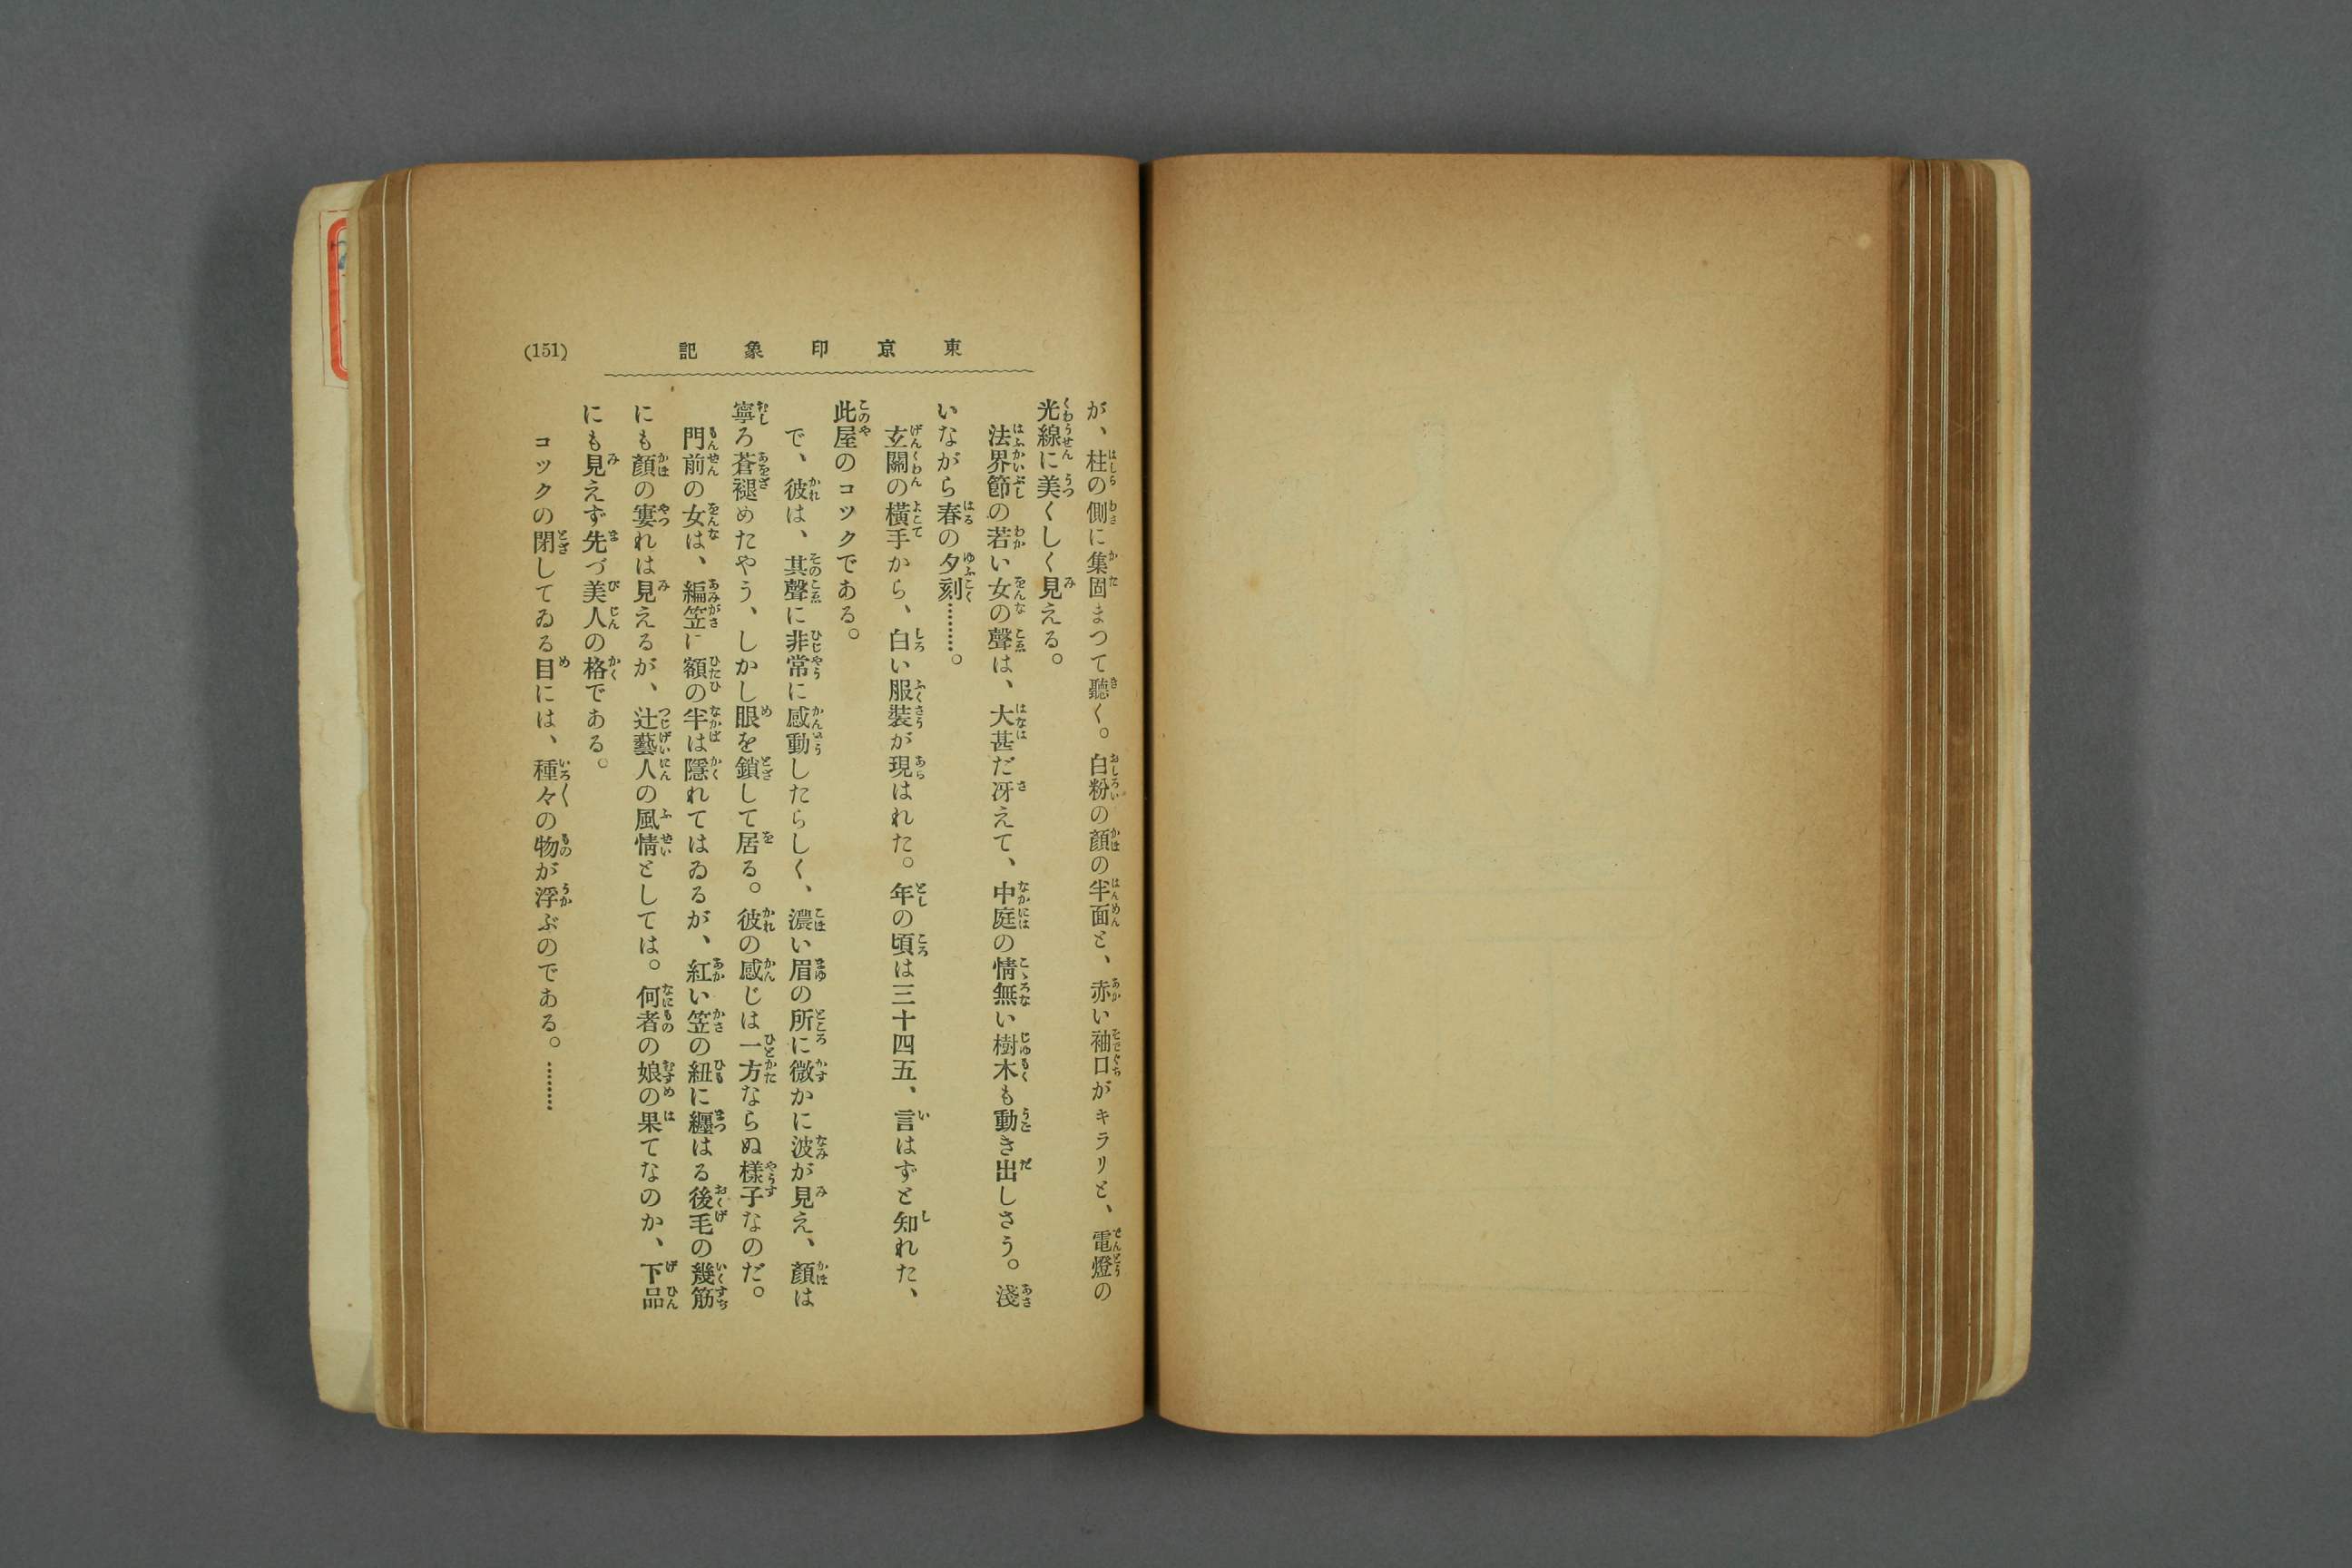 東京印象記
(151)
が、柱の側に集固まつて聽く。白粉の顏の半面と、赤い袖口がキラリと、電燈の
光線に美くしく見える。
法界節の若い女の聲は、大甚だ冴えて、中庭の情無い樹木も動き出しさう。淺
いながら春の夕刻………。
玄關の横手から、白い服裝が現はれた。年の頃は三十四五、言はずと知れた、
此屋のコックである。
で、彼は、其聲に非常に感動したらしく、濃い眉の所に微かに波が見え、顏は
寧ろ蒼褪めたやう、しかし眼を鎖して居る。彼の感じは一方ならぬ樣子なのだ。
門前の女は、編笠に額の半は隱れてはゐるが、紅い笠の紐に纒はる後毛の幾筋
にも顏の窶れは見えるが、辻藝人の風情としては。何者の娘の果てなのか、下品
にも見えず先づ美人の格である。
コックの閉してゐる目には、種々の物が浮ぶのである。………